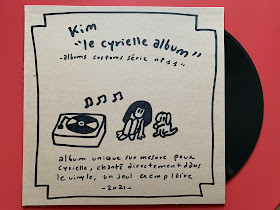 Kim
"le cyrielle album"
- albums customs série n°11 -
album unique sur mesure pour
cyrielle, chanté directement dans
le vinyle, un seul exemplaire
- 2021 -